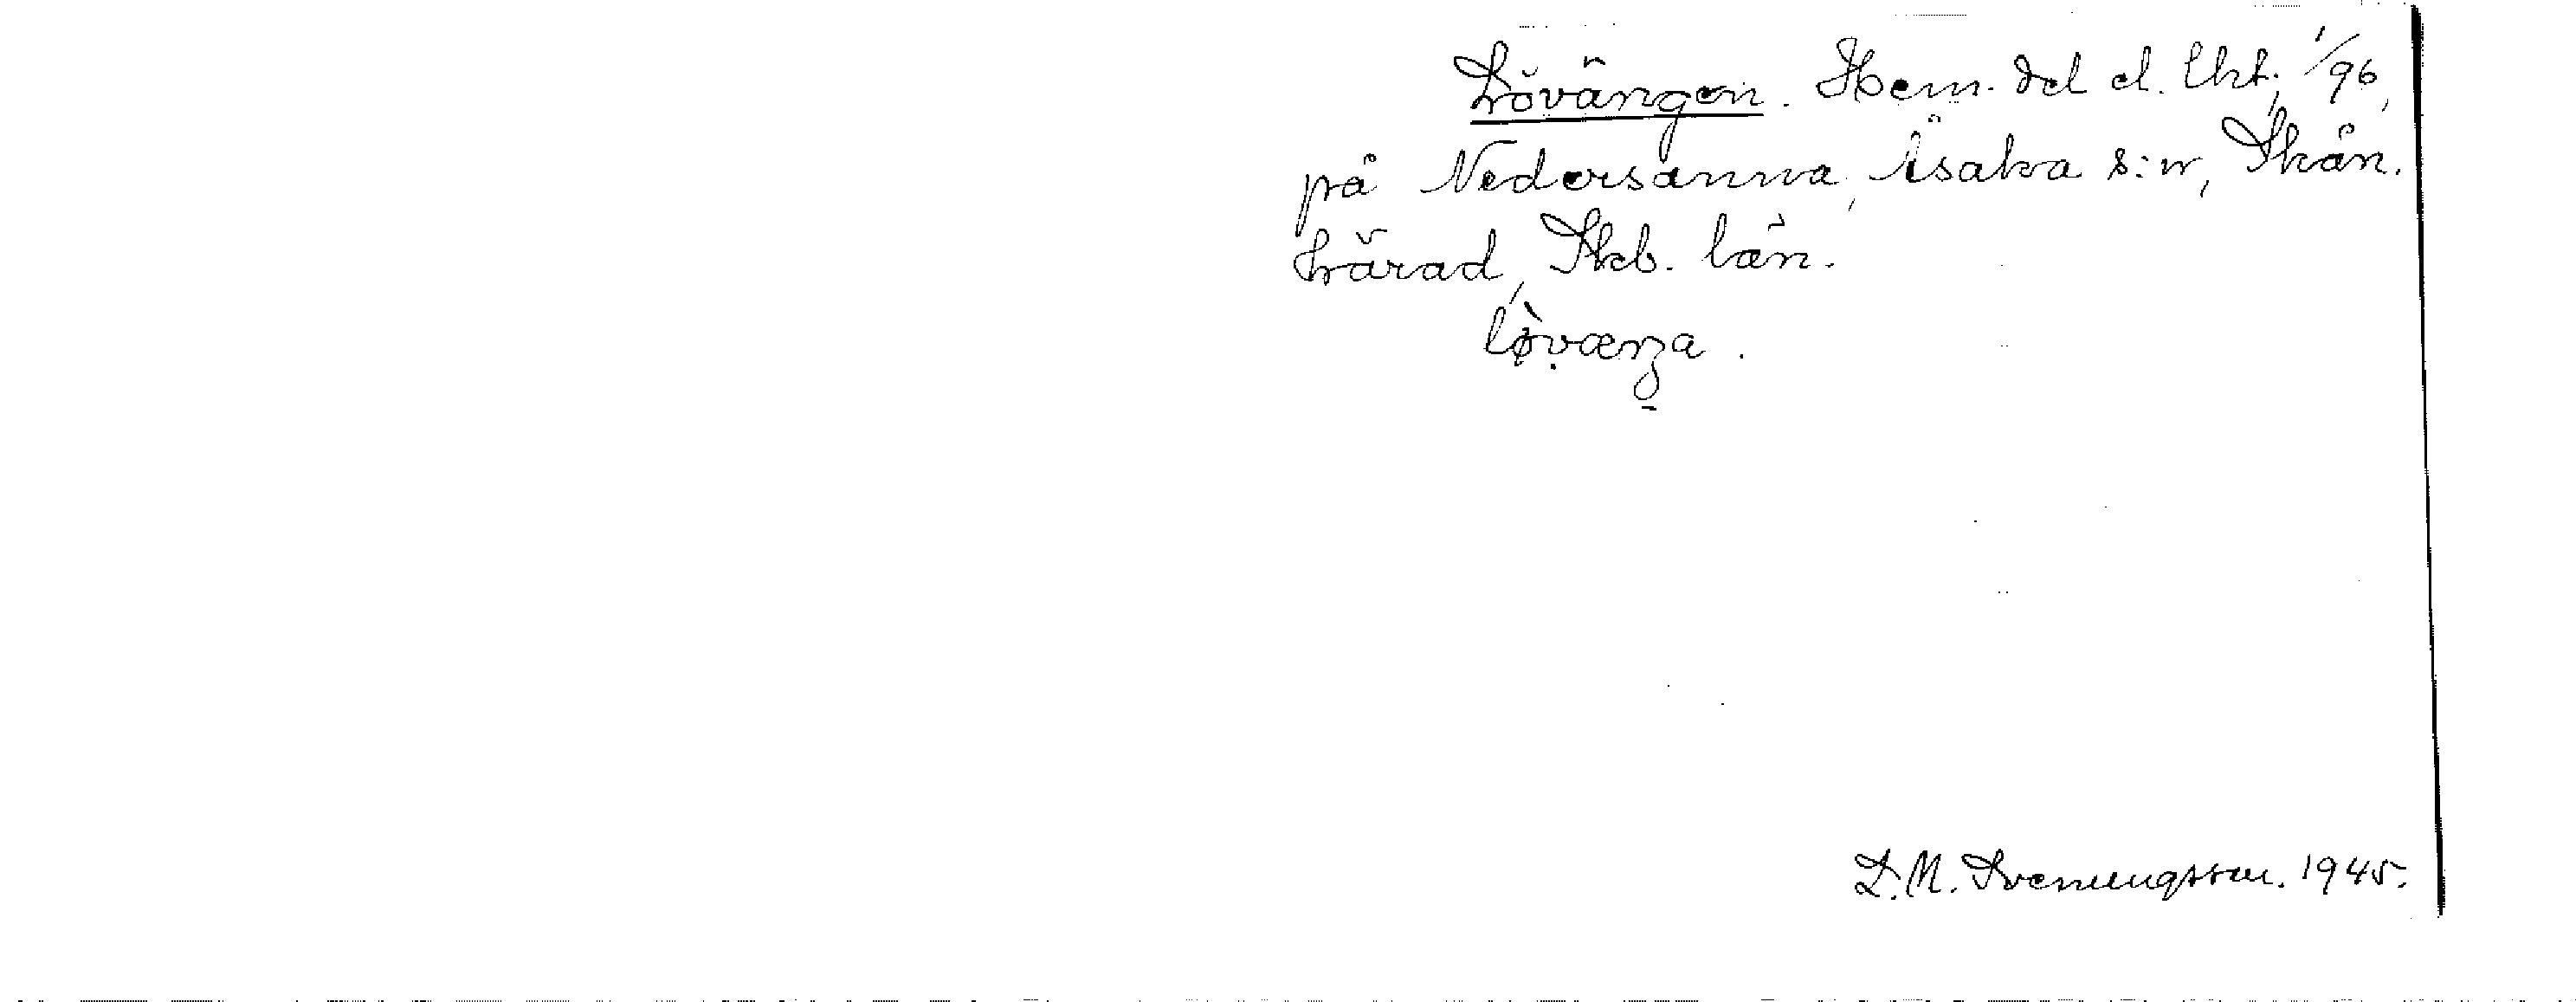 Lövängen. Hem. del el. lht, 1/96,
på Nedersanna, Åsaka s:n, Skån.
härad, Skb. län.
lø̀væŋa.
D. M. Svenungsson. 1945.